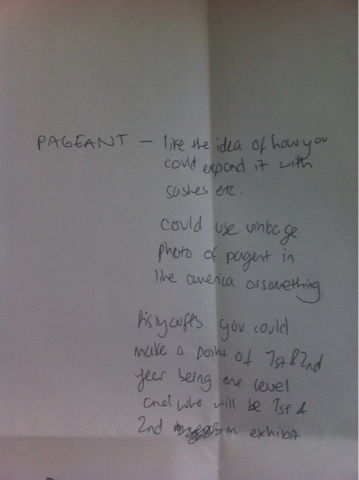 PAGEANT - like the idea of how you
could expand it with
sashes etc.
could use vintage
photo of pagent in
like america or something
fistycuffs you could
make a point of 1st & 2nd
year being one level
and who will be 1st &
2nd in exhibit